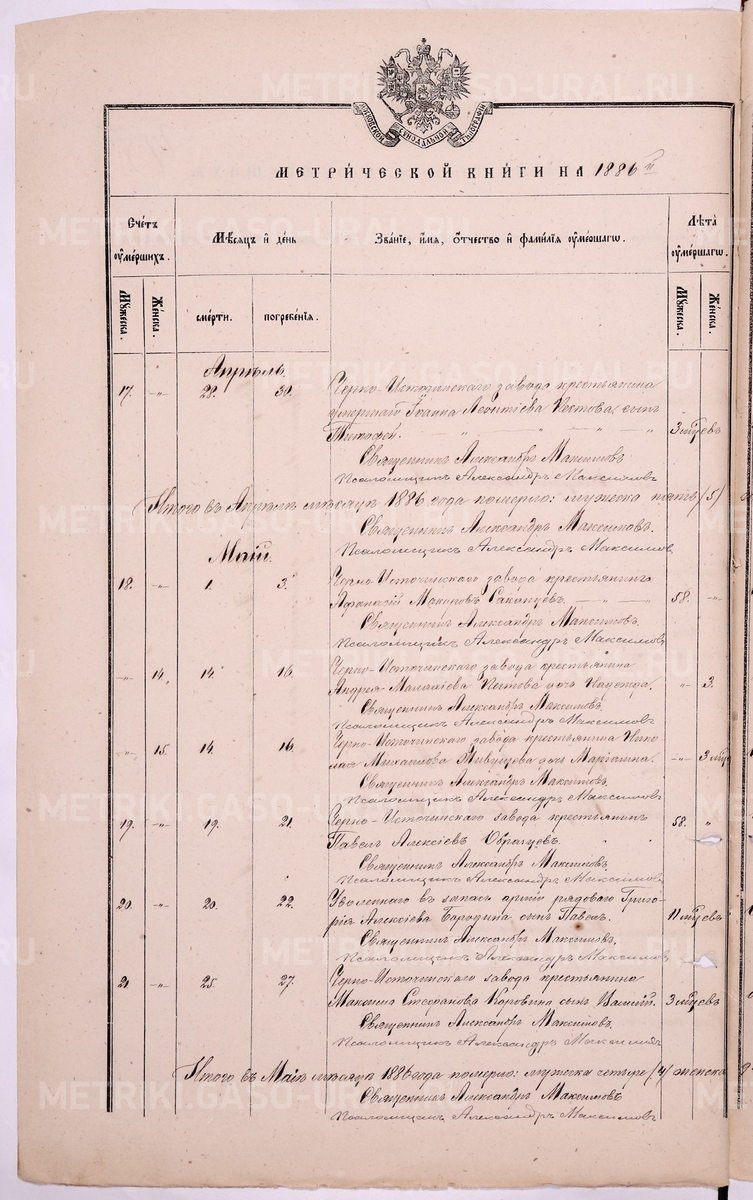 МОСКОВСКОЙ СѴНОДАЛЬНОЙ ТѴПОГРАФІИ
МЕТРИ́ЧЕСКОЙ КНИ́ГИ НА 1886 й
Счётъ ᲂумéршихъ.
Мѣ́сяцъ и день
Зва́нїе, и́мя, ѻ́тчество и фами́лїя ᲂумéршагѡ.
Лѣта̀ ᲂумéршагѡ.
Му́жеска.
Же́нска.
смéрти.
погребéнїя.
Му́жеска.
Же́нска.
Апрѣль.
17. -„- 28. 30. Черно-Источинскаго завода крестьянина
умершаго Іоанна Леонтіева Кестова сынъ
Тимофей. 3 мѣсяцевъ
Священникъ Александръ Максимовъ
Псаломщикъ Александръ Максимовъ
Итого въ Апрѣлѣ мѣсяцѣ 1886 года померло: мужеска пять (5)
Священникъ Александръ Максимовъ.
Псаломщикъ Александръ Максимов
Май.
18. -„- 1. 3. Черно-Источинскаго завода крестьянинъ
Афанасій Макаровъ Саканцевъ. 58. -„-
Священникъ Александръ Максимовъ.
Псаломщикъ Александръ Максимовъ
-„- 14. 14. 16. Черно-Источинскаго завода крестьянина
Андрея Кестова дочь Надежда. „ 3.
Священникъ Александръ Максимовъ,
Псаломщикъ Александръ Максимовъ
-„- 15. 14. 16. Черно-Источинскаго завода крестьянина Нико
лая Михаилова дочь Маріанна. -„- 3 мѣс
Священникъ Александръ Максимовъ,
Псаломщикъ Александръ Максимовъ
19. -„- 19. 21. Черно-Источинскаго завода крестьянинъ
Павелъ Алексіевъ Образцевъ. 58. „
Священникъ Александръ Максимовъ,
Псаломщикъ Александръ Максимовъ
20. -„- 20. 22. Уволеннаго въ запасъ арміи рядоваго Григо-
рія Алексіева Бородина сынъ Павелъ. 11 мѣсяцевъ
Священникъ Александръ Максимовъ,
Псаломщикъ Александръ Максимов
21. -„- 25. 27. Черно-Источинскаго завода крестьянина
Максима Стефанова Коровина сынъ Василій. 3 мѣсяцевъ
Священникъ Александръ Максимовъ,
Псаломщикъ Александръ Максимовъ
Итого въ Маѣ мѣсяцѣ 1886 года померло: мужеска четыре (4) женска
Священникъ Александръ Максимовъ
Псаломщикъ Александръ Максимовъ
METRIKI.GASO-URAL.RU